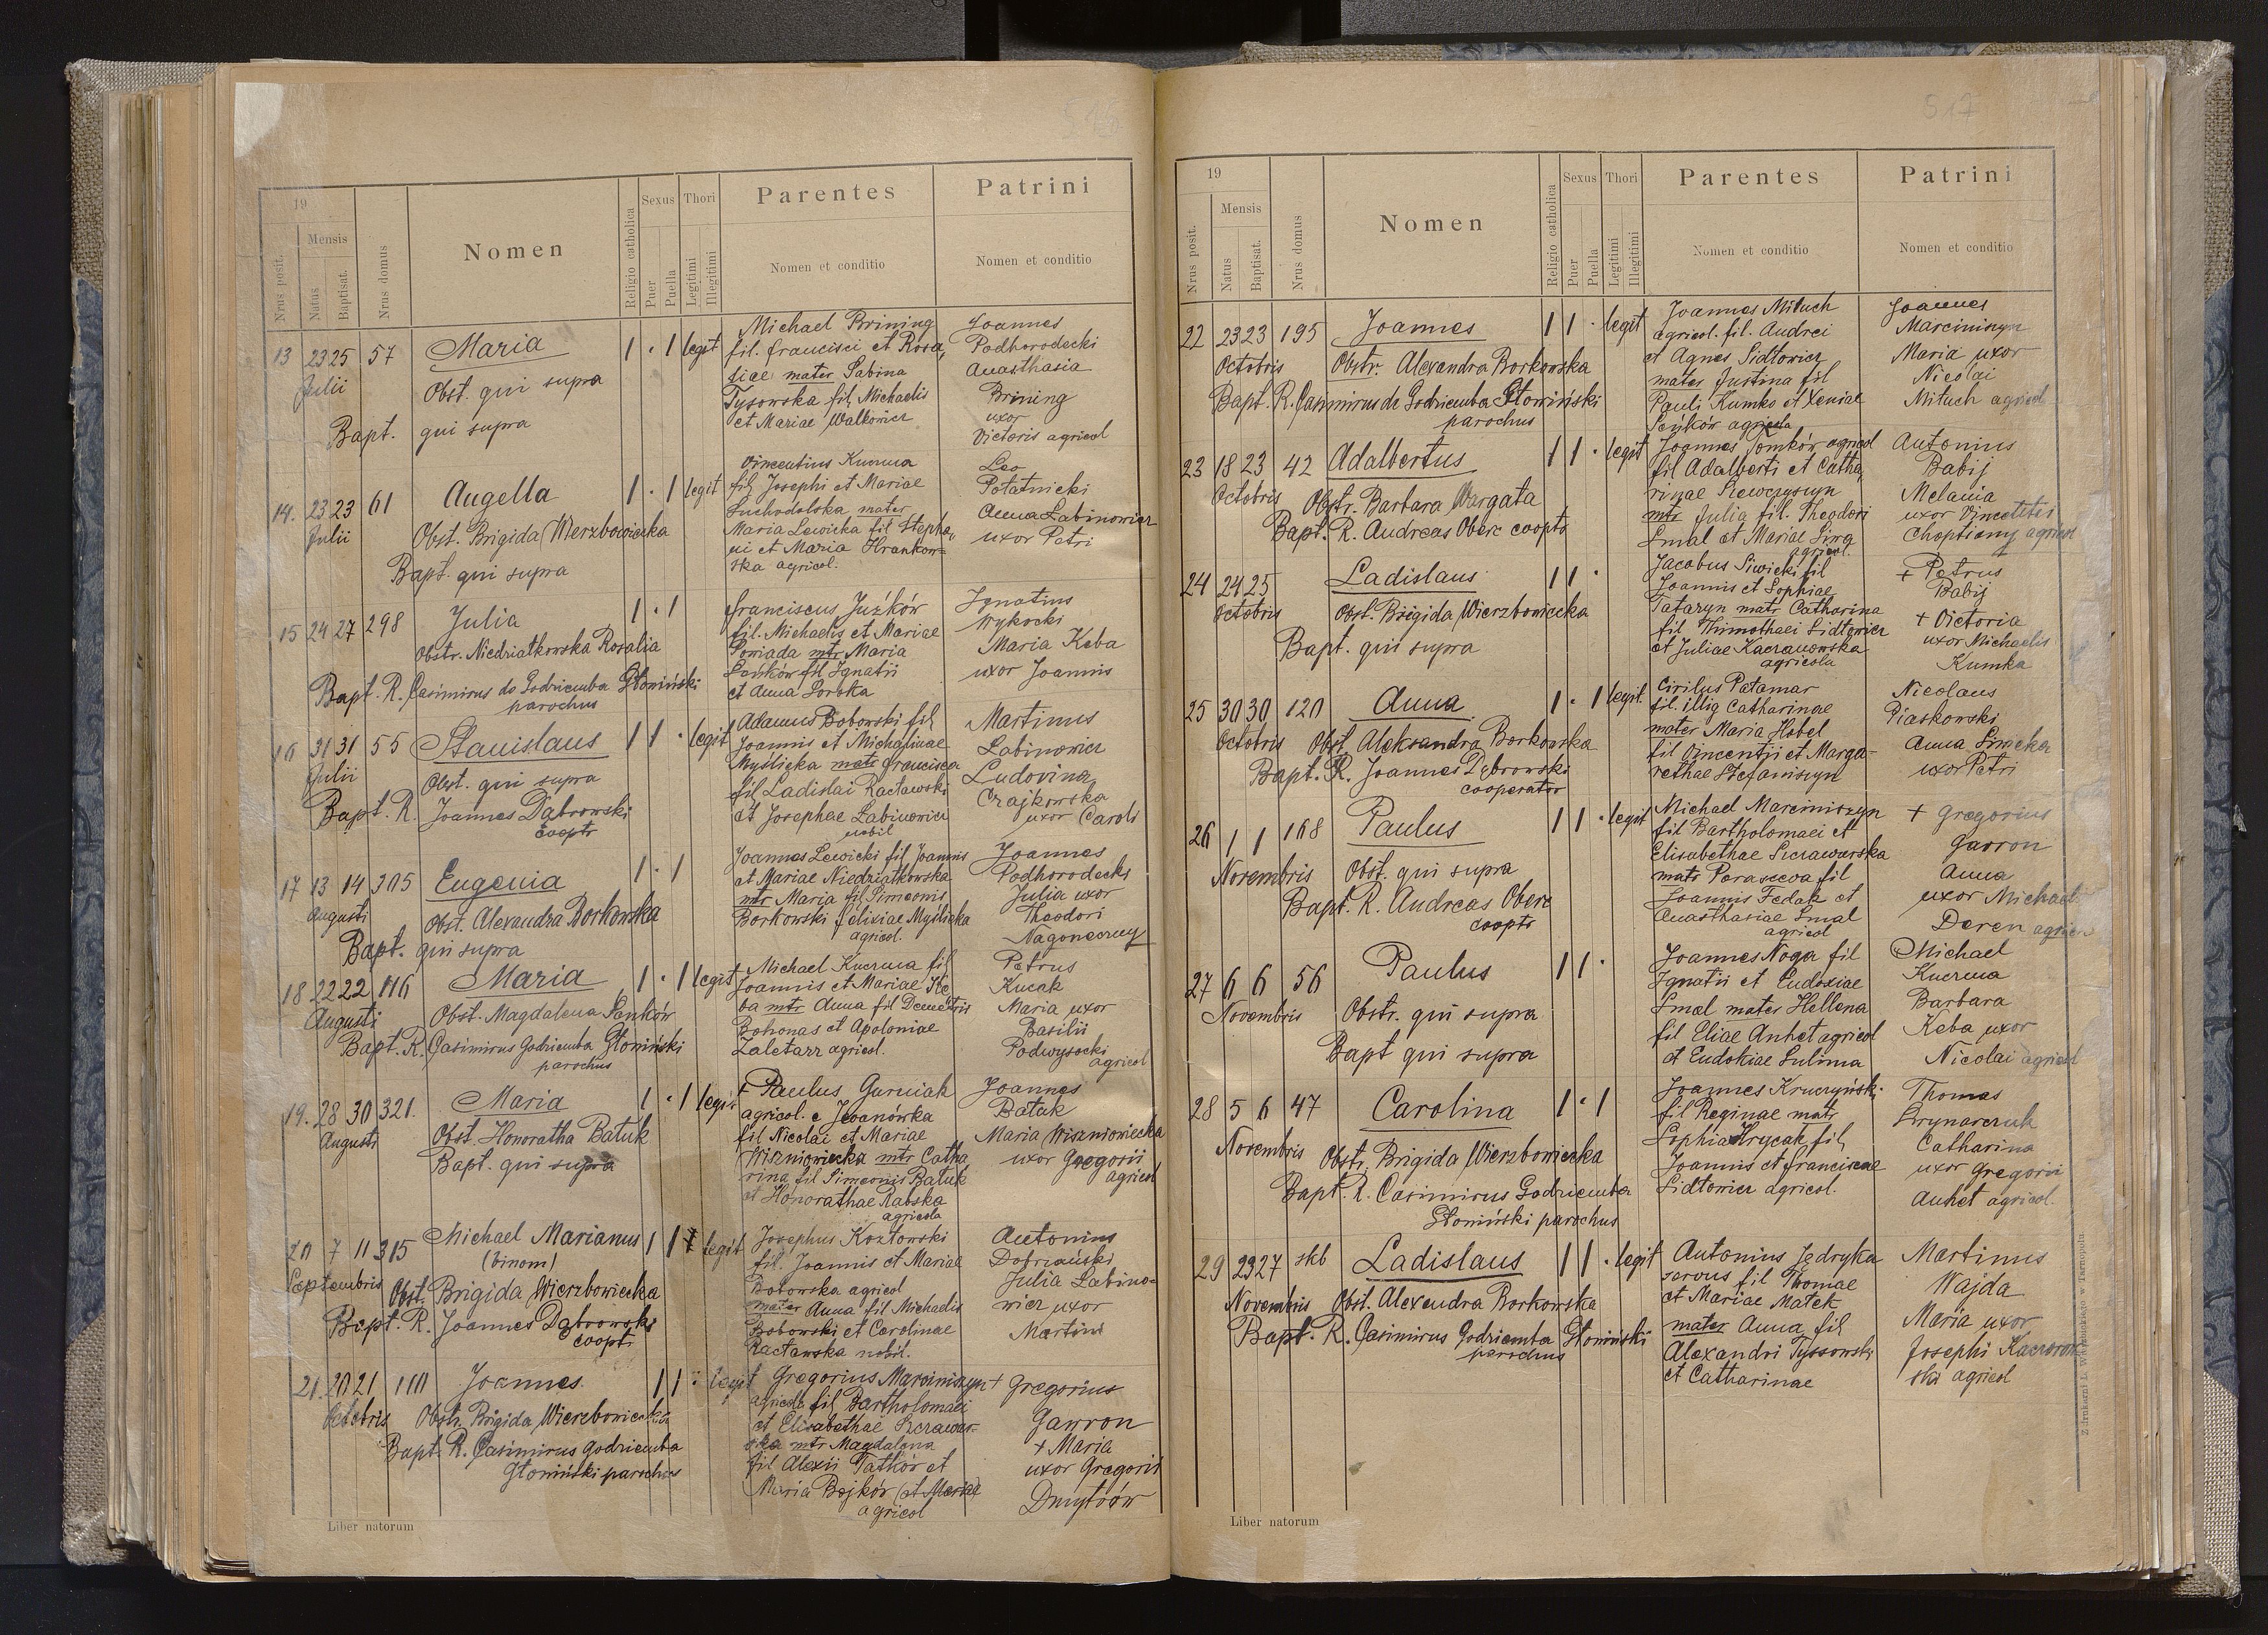 19
Mensis
Nrus posit.
Natus
Baptisat.
Nrus domus
Nomen
Religio catholica
Sexus
Puer
Puella
Thori
Legitimi
Illegitimi
Parentes
Nomen et conditio
Patrini
Nomen et conditio
13 23 25 57 Maria 1 · 1 legit
Julii Obst. qui supra
Bapt. qui supra
Michael Brining
fil. Francisci et Rosa,
liae mater Sabina
Tysowska fil. Michaelis
et Mariae Walkowicz
Joannes
Podhorodecki
Anasthasia
Brining
uxor
Victoris agricol
14. 23 23 61 Angella 1 · 1 legit
Julii Obst. Brigida Wierzbowiecka
Bapt. qui supra
Vincentius Kuczma
fil. Josephi et Mariae
Suchodolska mater
Maria Lewicka fil Stepha,
ni et Maria Hrankow-
ska agricol.
Leo
Potatnicki
Anna Labinowicz
uxor Petri
15 24 27 298 Julia 1 · 1
Obstr. Niedziałkowska Rosalia
Bapt. R. Casimirus de Godziemba Słoniński
parochus
Franciscus Juźków
fil. Michaelis et Mariae
mtr Maria
fil Ignatii
et Anna
Ignatius
Maria Keba
uxor Joannis
16 31 31 55 Stanislaus 1 1 · legit
Julii Obst. qui supra
Bapt. R. Joannes Dąbrowski
coopr
Adamus Bobowski fil
Joannis et Michalinae
Myślicka matr Francisca
fil Ladislai Racławski
et Josephae Labinowicz
nobil
Martinus
Labinowicz
Ludovina
Czajkowska
uxor Caroli
17 13 14 305 Eugenia 1 · 1
Augusti Obst. Alexandra Borkowska
Bapt. qui supra
Joannes Lewicki fil Joannis
et Mariae Niedziałkowska
mtr Maria fil Simeonis
Borkowski Felixiae Myślicka
agricol.
Joannes
Podhorodecki
Julia uxor
Theodori
Nagoneczny
18 22 22 116 Maria 1 · 1 legit
Augusti Obst. Magdalena Seńków
Bapt. R. Casimirus Godziemba Słoniński
parochus
Michael Kuczma fil
Joannis et Mariae Ke
ba mtr Anna fil Demetrii
Bohonas et Apoloniae
Zaletarz agricol.
Petrus
Kucak
Maria uxor
Basilii
Podwysocki
agricol
19. 28 30 321. Maria 1 · 1 legit
Augusti Obst. Honoratha Batuk
Bapt. qui supra
+ Paulus Garniak
agricol. e Iwanówka
fil Nicolai et Mariae
Wiszniowiecka mtr Catha
rina fil Simeonis Batuk
et Honorathae Rabska
agricola
Joannes
Batuk
Maria Wiszniowiecka
uxor Gregorii
agricol
20 7 11 315 Michael Marianus 1 1 legit
(binom)
Septembris Obst. Brigida Wierzbowiecka
Bapt. R. Joannes Dąbrowski
coopr
Josephus Kozłowski
fil. Joannis et Mariae
Bobowska agricol
mater Anna fil Michaelis
Bobowski et Carolinae
Racławska nobil.
Antonius
Dobriański
Julia Labino-
wicz uxor
Martini
21. 20 21 110 Joannes 1 1 legit
Octobris Obstr. Brigida Wierzbowiecka
Bapt. R. Casimirus Godziemba
Słoniński parochus
Gregorius Marciniszyn
agricola fil Bartholomaei
et Elisabethae Szczawar-
ska mtr Magdalena
fil Alexii Fatków et
Maria Bojków (et Maria)
agricol
+ Gregorius
Gawron
+ Maria
uxor Gregorii
Dmytrów
Liber natorum
517
19
Mensis
Nrus posit.
Natus
Baptisat.
Nrus domus
Nomen
Religio catholica
Sexus
Puer
Puella
Thori
Legitimi
Illegitimi
Parentes
Nomen et conditio
Patrini
Nomen et conditio
22 23 23 195 Joannes 1 1 · legit
Octobris Obstr. Alexandra Borkowska
Bapt. R. Casimirus de Godziemba Słoniński
parochus
Joannes Mituch
agricol. fil. Andrei
et Agnes Sidłowicz
mater Justina fil
Pauli Kumko et Xeniae
Seńków agricola
Joannes
Marciniszyn
Maria uxor
Nicolai
Mituch agricol
23 18 23 42 Adalbertus 1 1 · legit
Octobris Obstr. Barbara Wargata
Bapt. R. Andreas Oberc coopr
Joannes Tomków agricol
fil. Adalberti et Catha,
rinae Szewczyszyn
mtr Julia fil. Theodori
Smal et Mariae
agricol.
Antonius
Babij
Melania
uxor Vincentii
Choptiany agricol
24 24 25 Ladislaus 1 1 ·
Octobris Obst. Brigida Wierzbowiecka
Bapt. qui supra
Jacobus Siwicki fil
Joannis et Sophiae
Tataryn matr Catharina
fil Thimothaei Sidłowicz
et Juliae Kaczanowska
agricola
+ Petrus
Babij
+ Victoria
uxor Michaelis
Kumka
25 30 30 120 Anna 1 · 1 legit.
Octobris Obst. Aleksandra Borkowska
Bapt. R. Joannes Dąbrowski
cooperator
Cirilus Patamar
fil. illig Catharinae
mater Maria Hobel
fil Vincentii et Marga-
rethae Stefaniszyn
Nicolaus
Piaskowski
Anna
uxor Petri
26 1 1 168 Paulus 1 1 · legit
Novembris Obst. qui supra
Bapt. R. Andreas Oberc
coopr
Michael Marciniszyn
fil Bartholomaei et
Elisabethae Szczawarska
matr Parascewa fil
Joannis Fedak et
Anasthasiae Smal
agricol
+ Gregorius
Gawron
Anna
uxor Michael
Deren agricol
27 6 6 56 Paulus 1 1 ·
Novembris Obstr. qui supra
Bapt qui supra
Joannes Noga fil
Ignatii et Eudoxiae
Smal mater Hellena
fil Eliae Anhet agricol
et Eudokiae Sulima
Michael
Kuczma
Barbara
Keba uxor
Nicolai agricol
28 5 6 47 Carolina 1 · 1
Novembris Obstr. Brigida Wierzbowiecka
Bapt. R. Casimirus Godziemba
Słoniński parochus
Joannes Kruczyński
fil Reginae matr
Sophia Hrycak fil
Joannis et Franciscae
Sidłowicz agricol.
Thomas
Catharina
uxor Gregorii
Anhet agricol.
29 23 27 skb Ladislaus 1 1 · legit
Novembris Obst. Alexandra Borkowska
Bapt. R. Casimirus Godziemba Słoniński
parochus
Antonius Jędryka
servus fil Thomae
et Mariae Matek
mater Anna fil
Alexandri Tyssowski
et Catharinae
Martinus
Wajda
Maria uxor
Josephi Kaczorow
ski agricol
Liber natorum